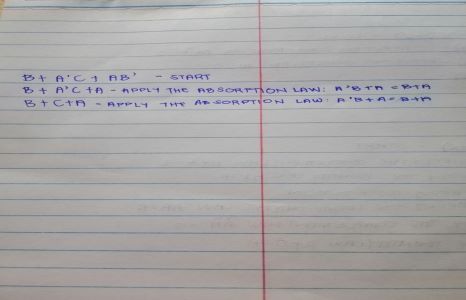 B + A'C + AB' - START
B + A'C + A - APPLY THE ABSORPTION LAW: A'B+A = B+A
B + C + A - APPLY THE ABSORPTION LAW: A'B+A = B+A